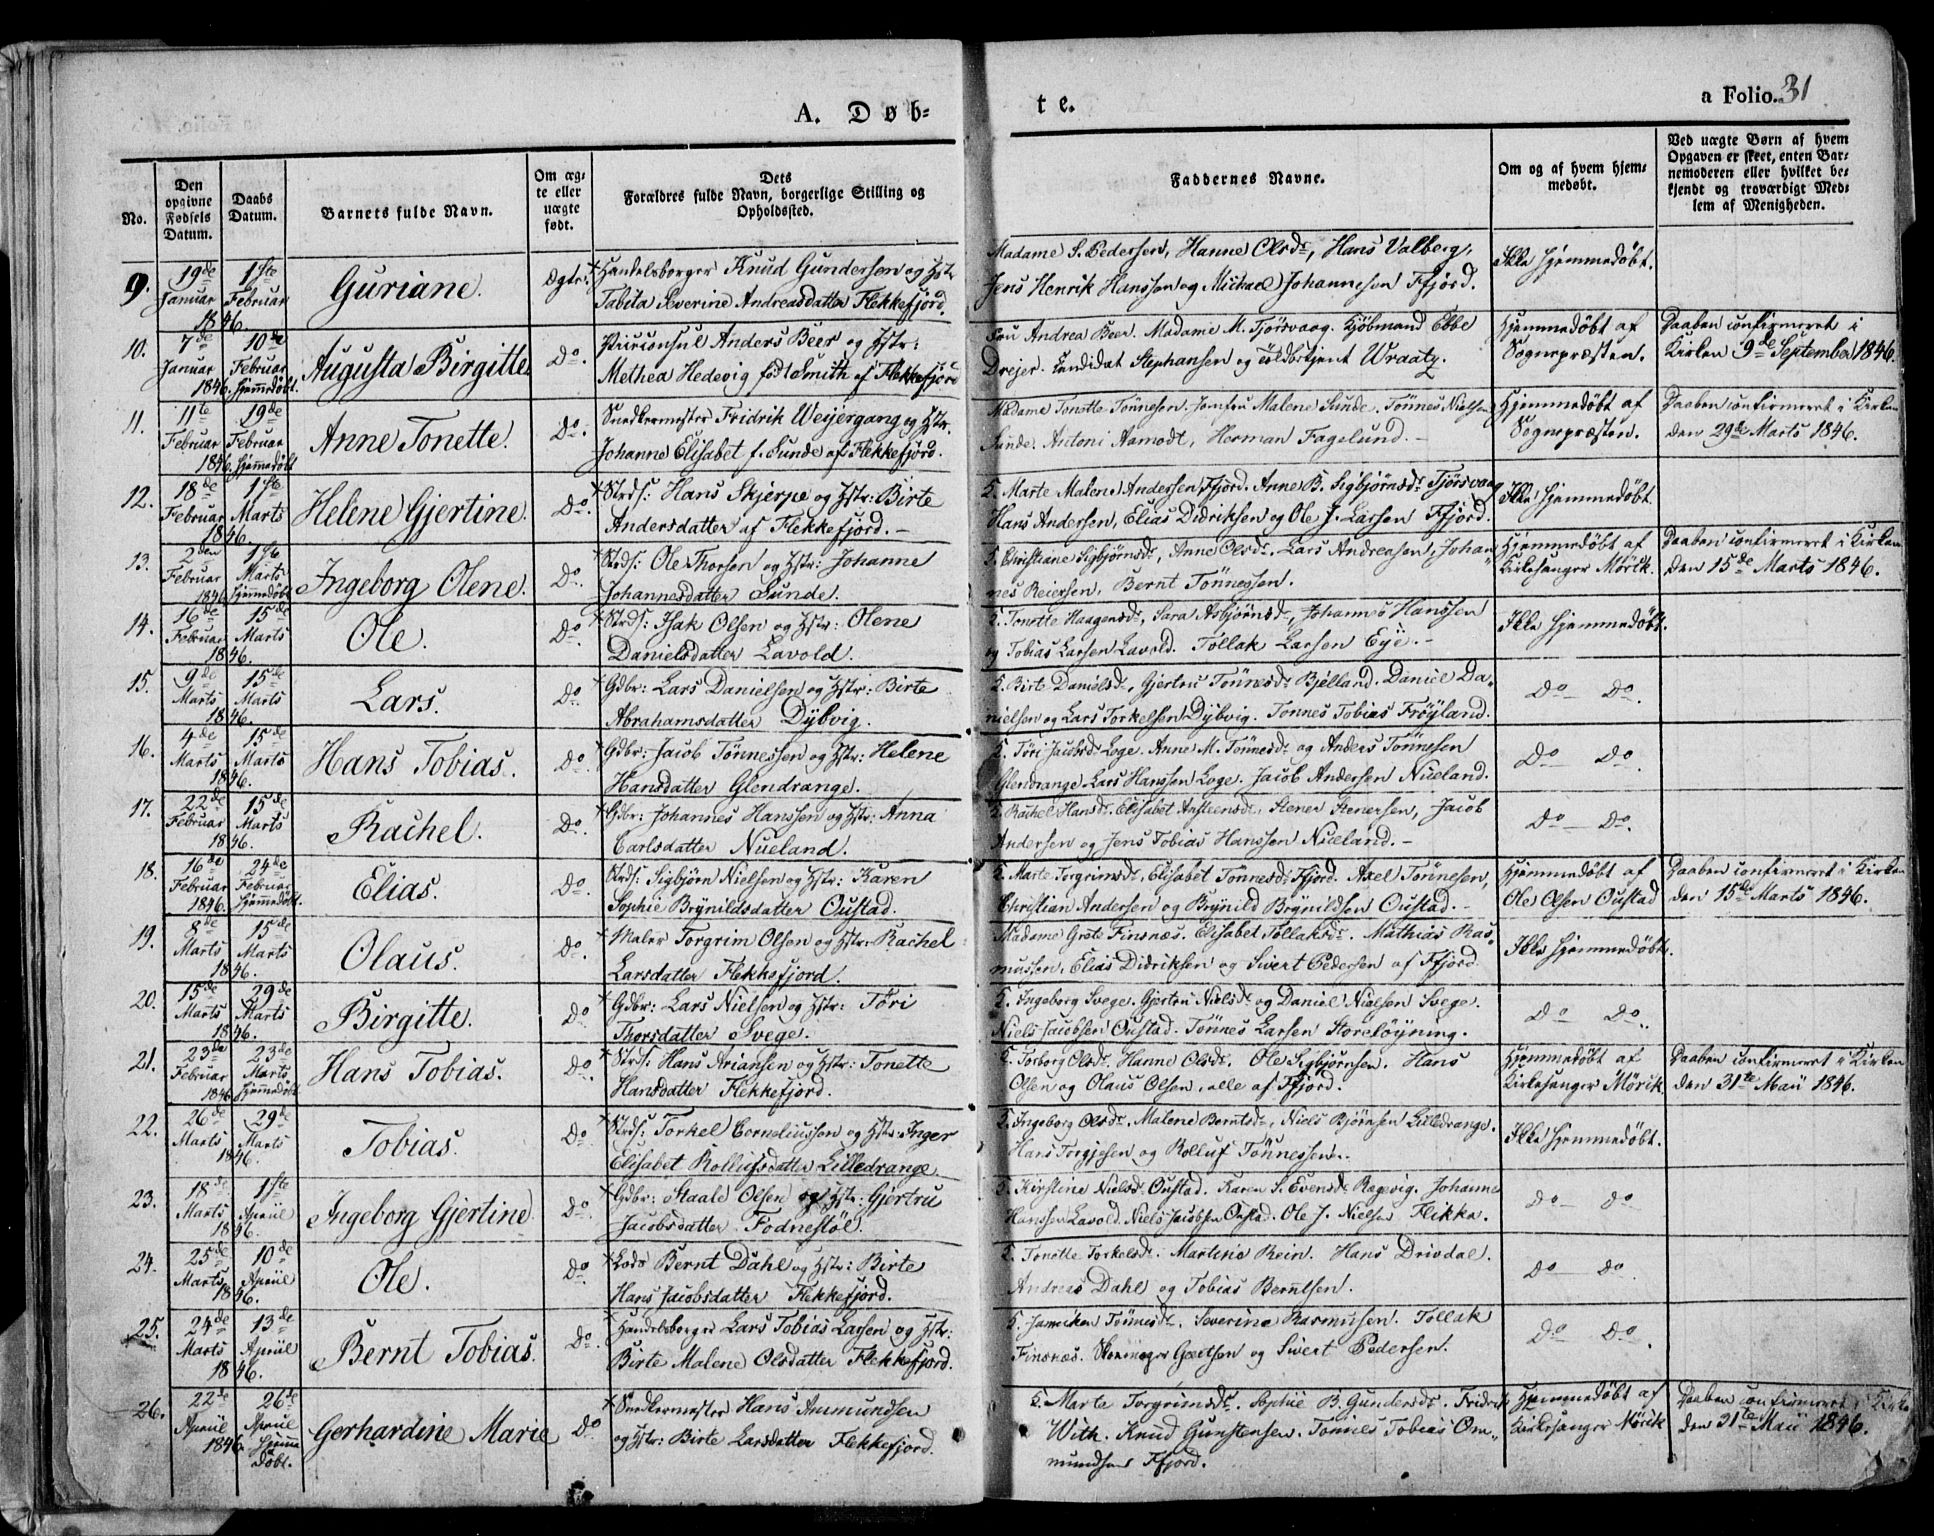 A. Døb=
te.
a Folio. 31
No.
Den opgivne Fødsels Datum.
Daabs Datum.
Barnets fulde Navn.
Om ægte eller uægte født.
Dets Forældres fulde Navn, borgerlige Stilling og Opholdssted.
Faddernes Navne.
Om og af hvem hjemmedøbt.
Ved uægte Børn af hvem Opgaven er skeet, enten Barnemoderen eller hvilket bekjendt og troværdigt Medlem af Menigheden.
9. 19de Januar 1846. 1ste Februar Guriane. Ægte
Handelsborger Knud Gundersen og Hstr
Tabita Severine Andreasdatter Flekkefjord.
Madame S. Pedersen, Hanne Olsdr, Hans Valberg,
Jens Henrik Hanssen og Michael Johannesen Ffjord.
Ikke Hjemmedøbt.
10. 7de Januar 1846. 10de Februar Hjemmedøbt. Augusta Birgitte Do.
Viceconsul Anders Beer og Hstr:
Methea Hedevig født Smith af Flekkefjord
Fru Andrea Beer. Madame M. Tjörsvaag. Kjøbmand Ebbe
Drejer. Candidat Stephansen og Toldbetjent Wraatz.
Hjemmedøbt af
Sognepræsten.
Daaben confirmeret i
Kirken 9de September 1846.
11. 11te Februar 1846. 19de Februar Hjemmedøbt Anne Tonette. Do.
Snedkermester Fridrik Weyergang og Hstr.
Johanne Elisabet f. Sunde af Flekkefjord.
Madame Tonette Tønnesen. Jomfru Malene Sunde. Tønnes Nielsen
Sunde. Antoni Aamodt, Herman Fagelund.
Hjemmedøbt af
Sognepræsten.
Daaben confirmeret i Kirken
den 29de Marts 1846.
12. 18de Februar 1846. 1ste Marts Helene Gjertine. Do.
Strds: Hans Skjerpe og Hstr: Birte
Andersdatter af Flekkefjord.
Marte Malene Andersen Ffjord. Anne B. Sigbjørnsdr Tjörsvaag
Hans Andersen, Elias Didriksen og Ole J. Larsen Ffjord.
Ikke Hjemmedøbt.
13. 2den Februar 1846. 1ste Marts Hjemmedøbt Ingeborg Olene. Do.
Strds: Ole Thorsen og Hstr: Johanne
Johannesdatter Sunde.
Christiane Sigbjørnsdr, Anne Olsdr. Lars Andreasen, Johan-
nes Reiersen, Bernt Tönnessen.
Hjemmedøbt af
Kirkesanger Mörik.
Daaben confirmeret i Kirken
den 15de Marts 1846.
14. 16de Februar 1846. 15de Marts Ole. Do.
Strds: Isak Olsen og Hstr: Olene
Danielsdatter Lavold.
Tonette Haagensdr, Sara Asbjørnsdr, Johannes Hanssen
og Tobias Larsen Lavold. Tollak Larsen Eye.
Ikke Hjemmedøbt.
15. 9de Marts 1846. 15de Marts Lars. Do.
Gdbr: Lars Danielsen og Hstr: Birte
Abrahamsdatter Dybvig.
Birte Danielsdr, Gjertru Tönnesdr Bjelland. Daniel Da-
nielsen og Lars Torkelsen Dybvig. Tonnes Tobias Fröyland.
Do Do.
16. 4de Marts 1846. 15de Marts Hans Tobias. Do.
Gdbr: Jacob Tönnessen og Hstr: Helene
Hansdatter Glendrange.
Töri Jacobsdr Loge. Anne M. Tönnesdr og Anders Tönnesen
Glendrange. Lars Hanssen Loge. Jacob Andersen Nueland.
Do Do.
17. 22de Februar 1846. 15de Marts Rachel. Do.
Gdbr: Johannes Hanssen og Hstr: Anna
Carlsdatter Nueland.
Rachel Hansdr. Elisabet Anstensdr. Stener Stenersen, Jacob
Andersen og Jens Tobias Hanssen Nueland.
Do Do.
18. 16de Februar 1846. 24de Februar Hjemmedøbt. Elias. Do.
Strds: Sigbjörn Nielsen og Hstr: Karen
Sophie Brynildsdatter Oustad.
Marte Torgrimsdr, Elisabet Tönnesdr Ffjord. Axel Tönnesen,
Christian Andersen og Brynild Brynildsen Oustad.
Hjemmedøbt af
Ole Olsen Oustad
Daaben confirmeret i Kirken
den 15de Marts 1846.
19. 8de Marts 1846. 15de Marts Olaus. Do.
Maler Torgrim Olsen og Hstr: Rachel
Larsdatter Flekkefjord.
Madame Grete Finsnæs. Elisabet Tollaksdr. Mathias Ras-
mussen, Elias Didriksen og Sivert Pedersen af Ffjord.
Ikke Hjemmedøbt.
20. 15de Marts 1846. 29de Marts Birgitte. Do
Gdbr: Lars Nielsen og Hstr: Töri
Thorsdatter Svege.
Ingeborg Svege. Gjertru Nielsdr og Daniel Nielsen Svege.
Niels Jacobsen Oustad. Tönnes Larsen Storelöyning.
Do Do.
21. 23de Februar 1846. 23de Marts Hjemmedøbt Hans Tobias. Do.
Strds: Hans Ariansen og Hstr: Tonette
Hansdatter Flekkefjord.
Torborg Olsdr. Hanne Olsdr. Ole Sigbjörnsen. Hans
Olsen og Olaus Olsen, alle af Ffjord.
Hjemmedøbt af
Kirkesanger Mörik.
Daaben confirmeret i Kirken
den 31te Maii 1846.
22. 26de Marts 1846. 29de Marts Tobias. Do
Strds: Torkel Corneliussen og Hstr: Inger
Elisabet Rollufsdatter Lilledrange.
Ingeborg Olsdr. Malene Berntsdr, Niels Bjørnsen Lilledrange.
Hans Torgjesen og Rolluf Tönnessen.
Ikke Hjemmedøbt.
23. 18de Marts 1846. 1ste Apriil Ingeborg Gjertine. Do.
Gdbr: Staale Olsen og Hstr: Gjertru
Jacobsdatter Fodnestöl.
Kirstine Nielsdr Oustad. Karen S. Evensdr Ragevig. Johannes
Hanssen Lavold. Niels Jacobsen Oustad. Ole J. Nielsen Flikka.
Do Do
24. 25de Marts 1846. 10de Apriil Ole. Do
Lods Bernt Dahl og Hstr: Birte
Hans Jacobsdatter Flekkefjord.
Tonette Torkelsdr. Martine Rein. Hans Drivdal.
Andreas Dahl og Tobias Berntsen.
Do Do.
25. 24de Marts 1846. 13de Apriil Bernt Tobias. Do.
Handelsborger Lars Tobias Larsen og Hstr:
Birte Malene Olsdatter Flekkefjord.
Jamiken Tönnesdr. Severine Rasmusen. Tollak
Finsnæs. Geertsen og Sivert Pedersen.
Do Do.
26. 22de Apriil 1846. 26de Apriil Hjemmedøbt. Gerhardine Marie Do
Snedkermester Hans Ammundsen
og Hstr: Birte Larsdatter Flekkefjord.
Marte Torgrimsdr. Sophie B. Gundersdr. Fridrik
With. Knud Gunstensen. Tonnes Tobias Om-
mundsen Ffjord.
Hjemmedøbt af
Kirkesanger Mörik
Daaben confirmeret i Kirken
den 31te Maii 1846.